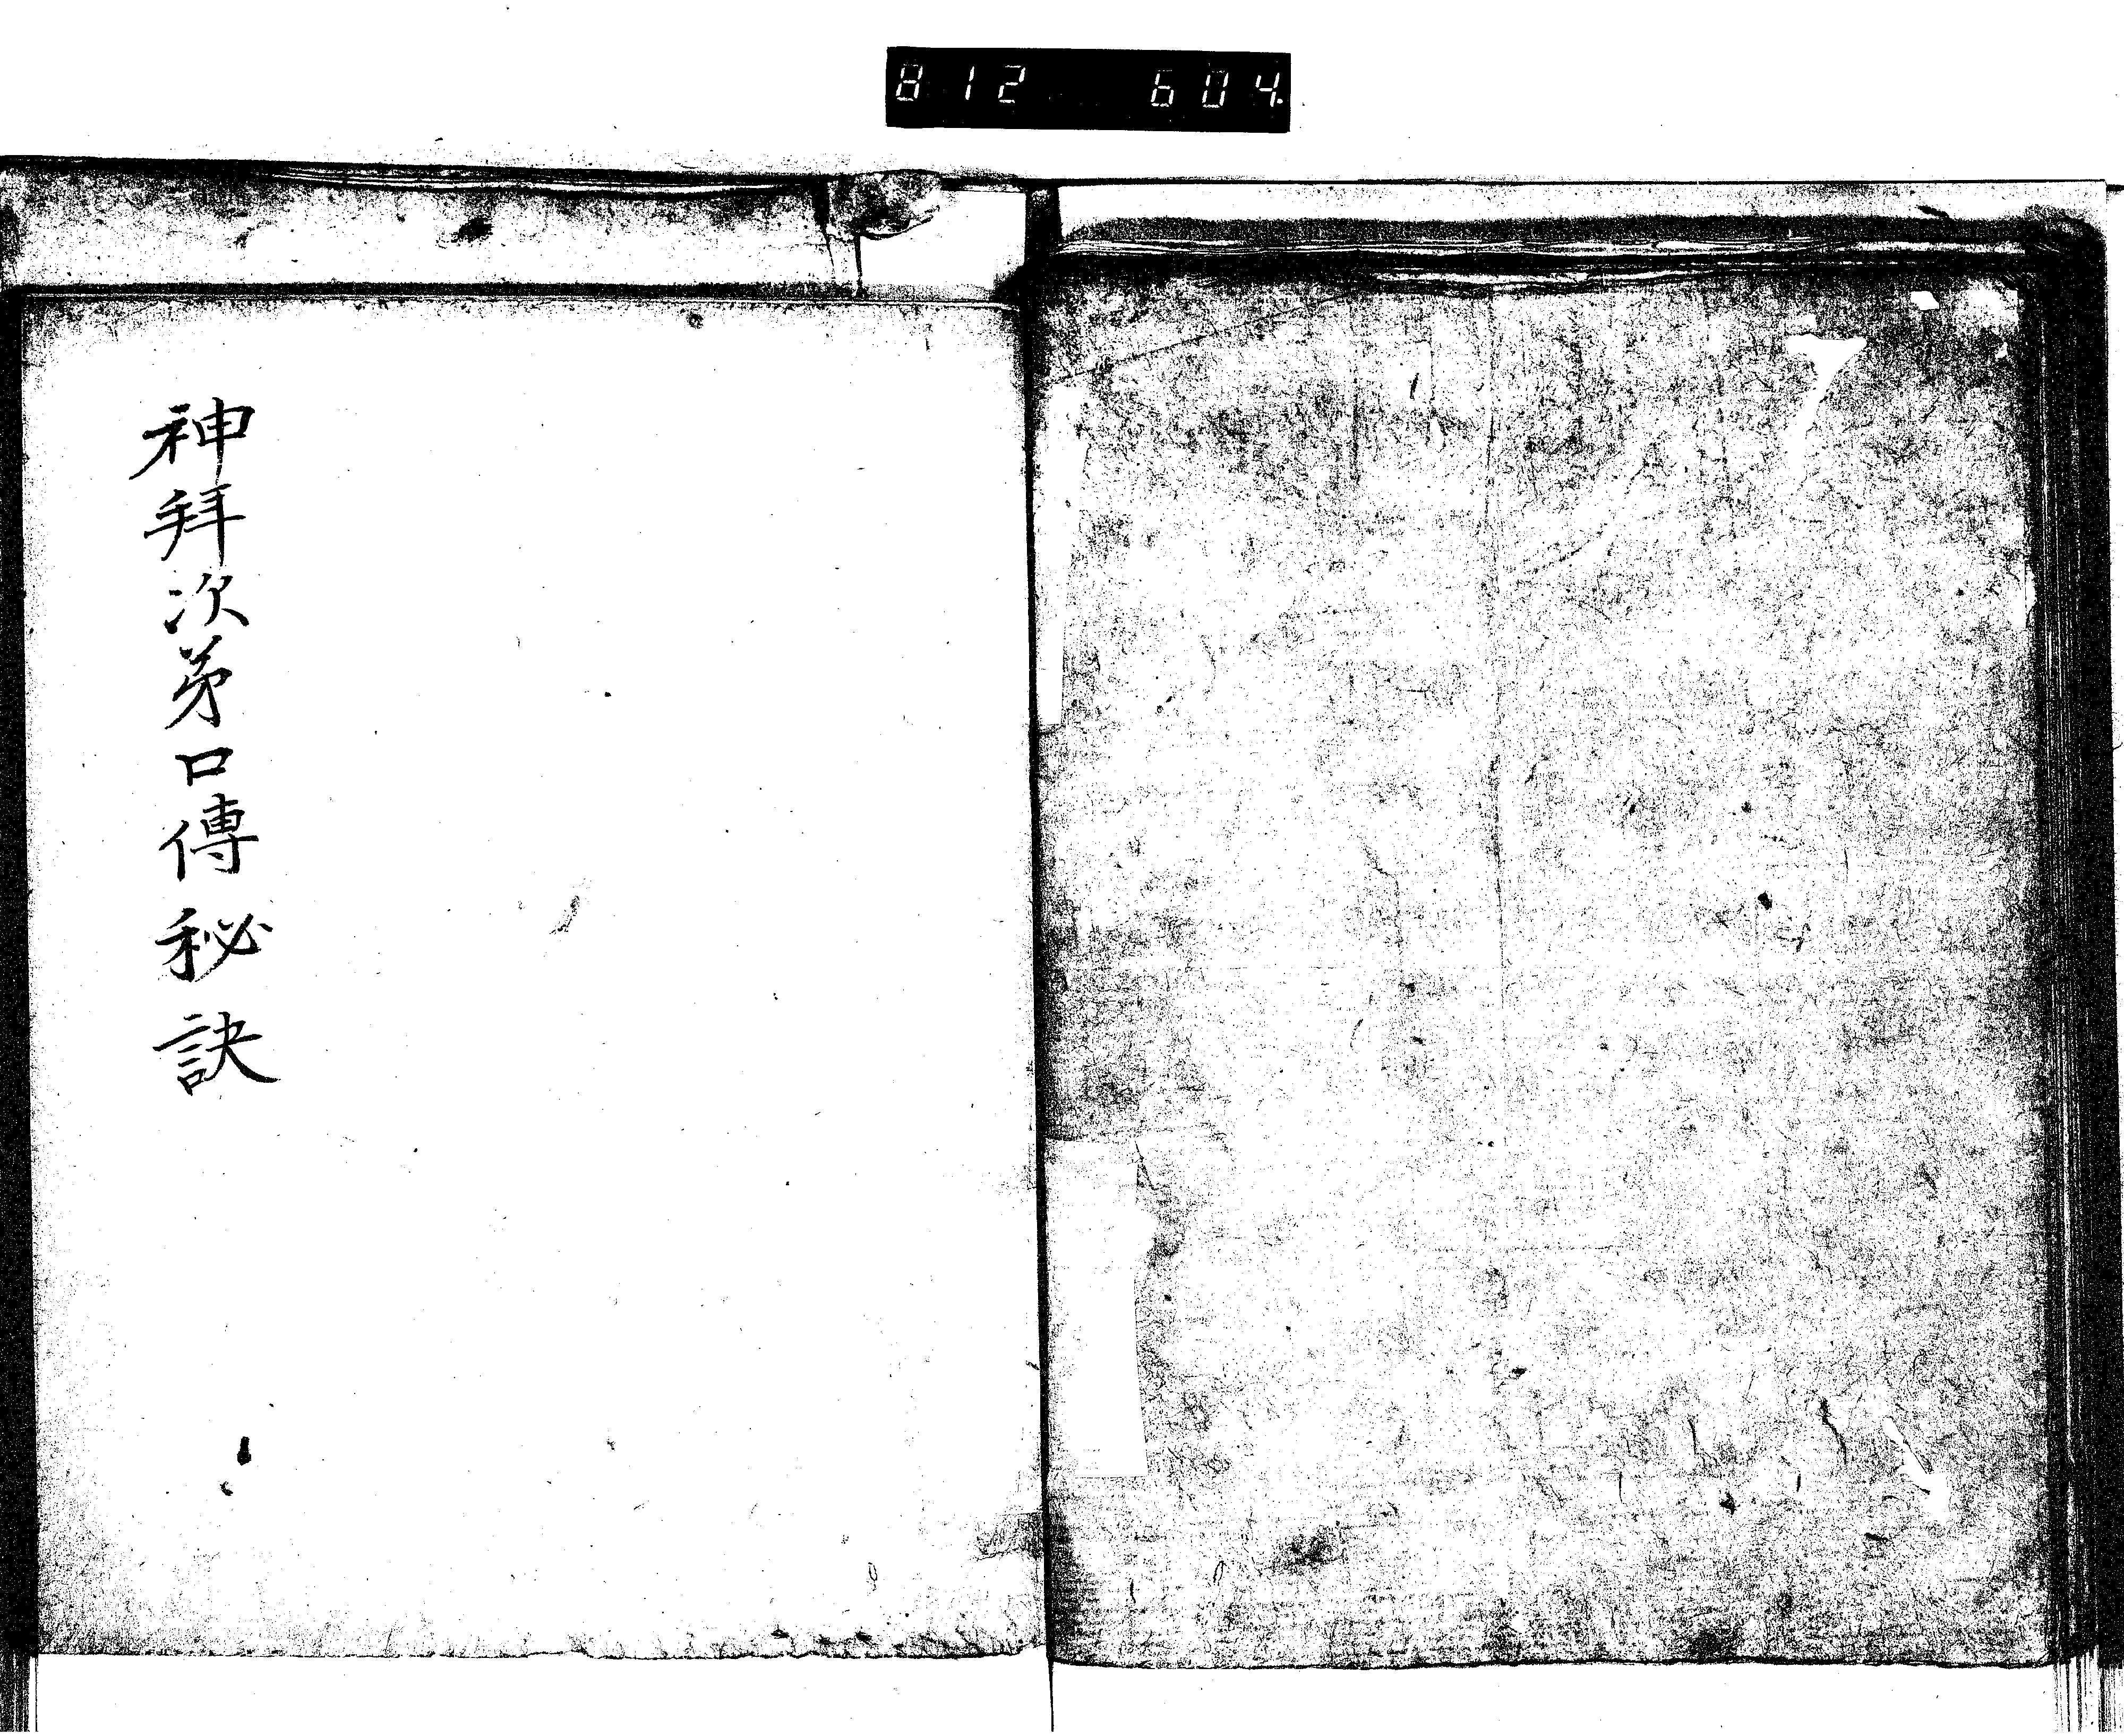 812 604
神拜次第口傳秘訣